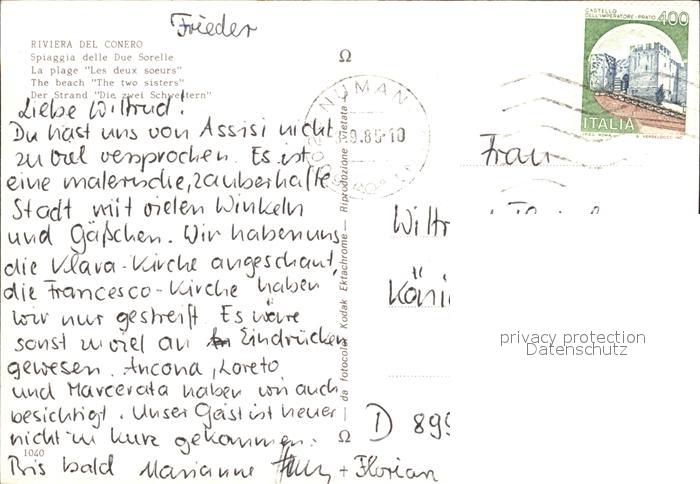 Frieder
RIVIERA DEL CONERO
Spiaggia delle Due Sorelle
La plage "Les deux soeurs"
The beach "The two sisters"
Der Strand "Die zwei Schwestern"
Liebe Wiltrud!
Du hast uns von Assisi nicht
zu viel versprochen. Es ist
eine malerische, zauberhafte
Stadt mit vielen Winkeln
und Gäßchen. Wir haben uns
die Klara-Kirche angeschaut,
die Francesco-Kirche haben
wir nur gestreift. Es wäre
sonst zuviel an Eindrücken
gewesen. Ancona, Loreto,
und Marcerata haben wir auch
besichtigt. Unser Geist ist heuer
nicht zu kurz gekommen.
1040
Bis bald Marianne + Florian
da fotocolor Kodak Ektachrome — Riproduzione vietata
NUMANA
.9.86-10
CASTELLO
DELL'IMPERATORE-PRATO
400
ITALIA
Frau
Wiltr
Köni
D 899
privacy protection
Datenschutz